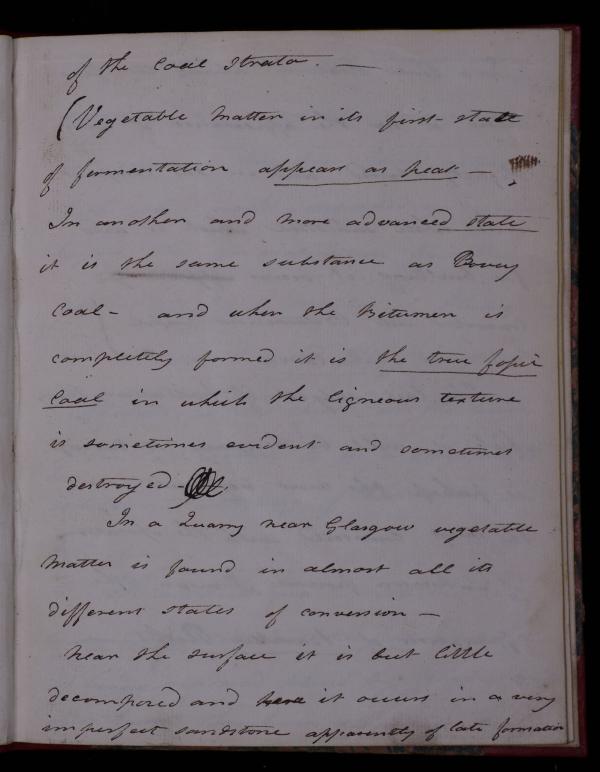 of the Coal Strata. —
(Vegetable matter in its first state
of fermentation appears as peat —
In another and more advanced state
it is the same substance as Bovey
Coal - and when the Bitumen is
completely formed it is the true fossil
Coal in which the ligneous texture
is sometimes evident and sometimes
destroyed -
In a Quarry near Glasgow vegetable
matter is found in almost all its
different states of conversion —
near the surface it is but little
decomposed and it occurs in a very
imperfect sandstone apparently of late formation